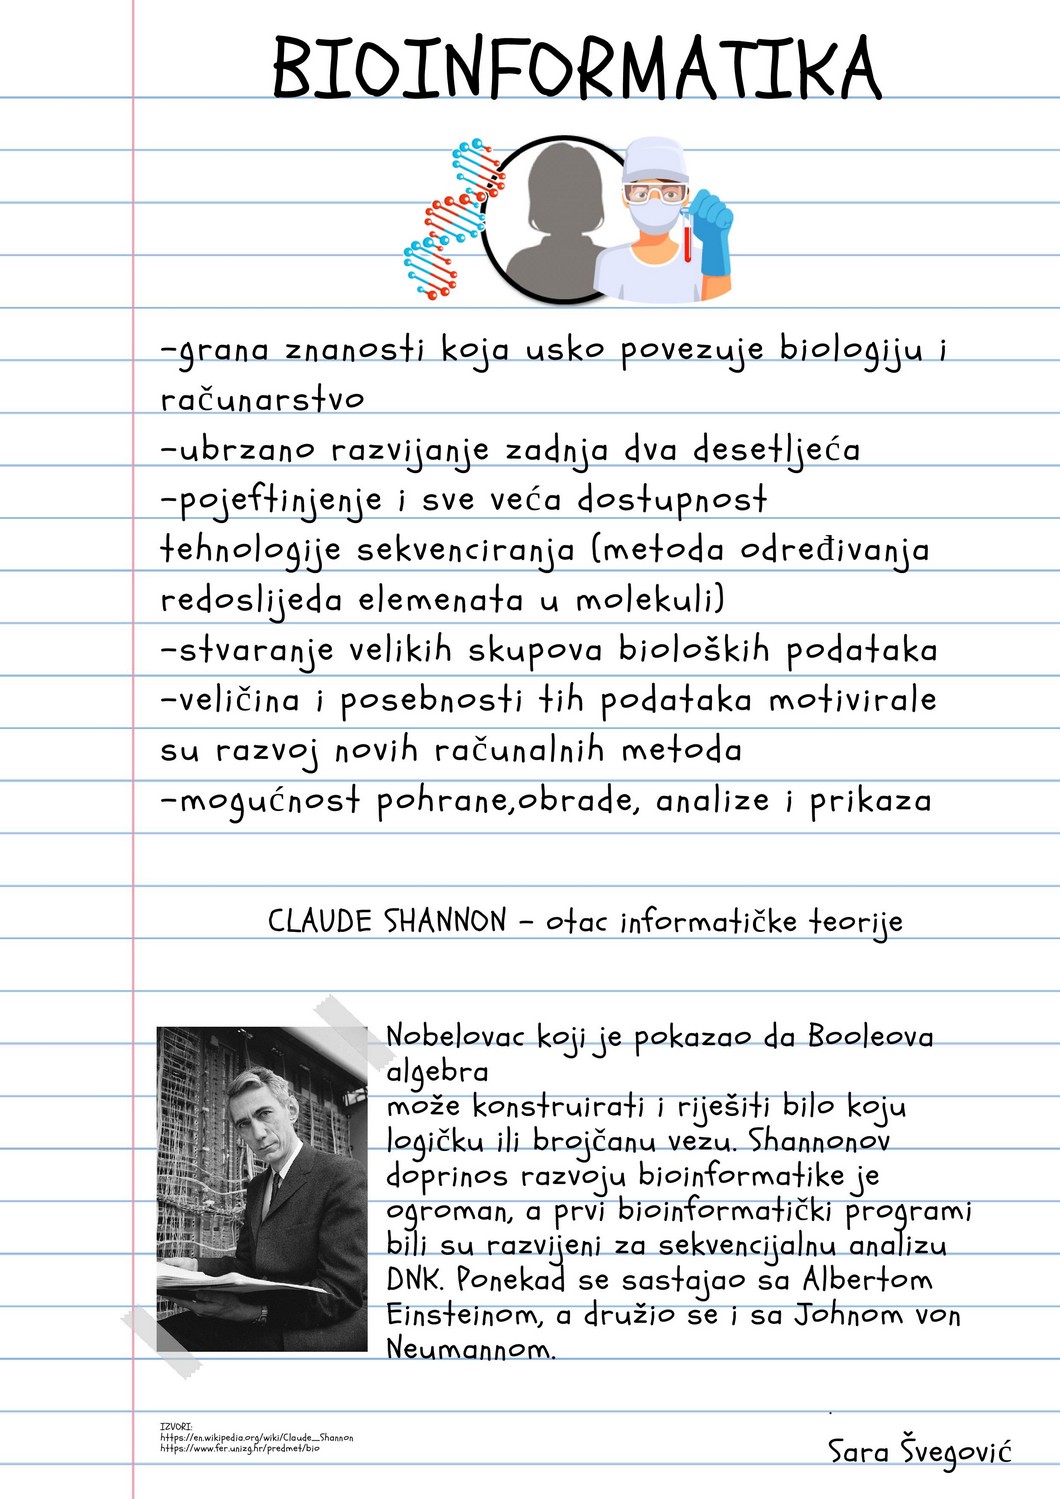 BIOINFORMATIKA
-grana znanosti koja usko povezuje biologiju i
računarstvo
-ubrzano razvijanje zadnja dva desetljeća
-pojeftinjenje i sve veća dostupnost
tehnologije sekvenciranja (metoda određivanja
redoslijeda elemenata u molekuli)
-stvaranje velikih skupova bioloških podataka
-veličina i posebnosti tih podataka motivirale
su razvoj novih računalnih metoda
-mogućnost pohrane,obrade, analize i prikaza
CLAUDE SHANNON - otac informatičke teorije
Nobelovac koji je pokazao da Booleova
algebra
može konstruirati i riješiti bilo koju
logičku ili brojčanu vezu. Shannonov
doprinos razvoju bioinformatike je
ogroman, a prvi bioinformatički programi
bili su razvijeni za sekvencijalnu analizu
DNK. Ponekad se sastajao sa Albertom
Einsteinom, a družio se i sa Johnom von
Neumannom.
IZVORI:
https://en.wikipedia.org/wiki/Claude_Shannon
https://www.fer.unizg.hr/predmet/bio
Sara Švegović